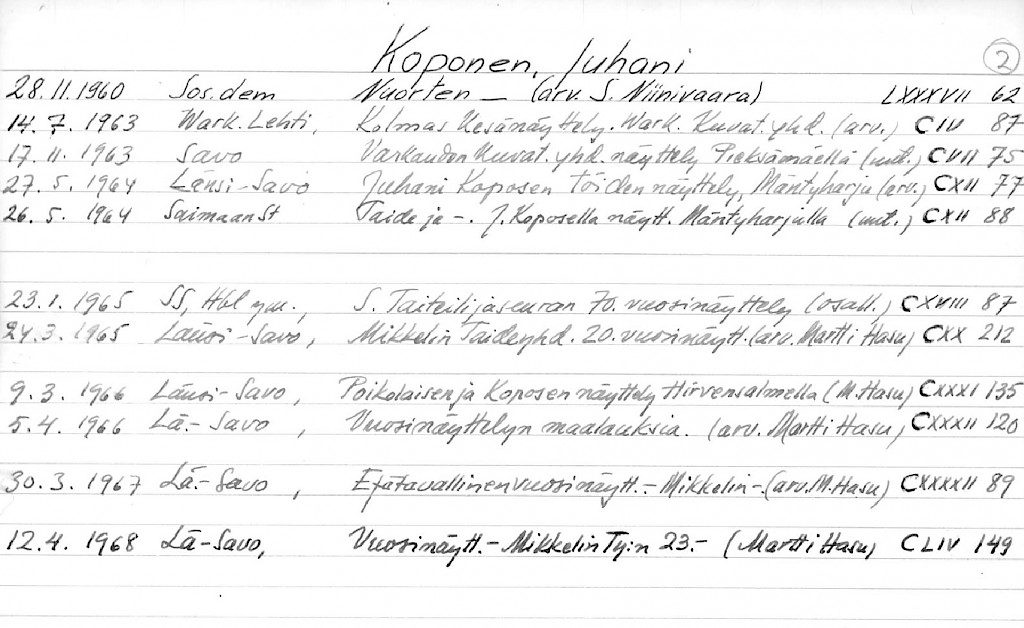 Koponen, Juhani 2
28.11.1960 Sos.dem Nuorten — (arv. S. Niinivaara) LXXXVII 62
14.7.1963 Wark. Lehti, Kolmas Kesänäyttely. Wark. Kuvat. yhd. (arv.) CIV 87
17.11.1963 Savo Varkauden Kuvat. yhd. näyttely Pieksämäellä (uut.) CVII 75
27.5.1964 Länsi-Savo Juhani Koposen töiden näyttely, Mäntyharju (arv.) CXII 77
26.5.1964 Saimaan St Taide ja -. J. Koposella näytt. Mäntyharjulla (uut.) CXII 88
23.1.1965 SS, Hbl ym., S. Taiteilijaseuran 70. vuosinäyttely (osall.) CXVIII 87
24.3.1965 Länsi-Savo, Mikkelin Taideyhd. 20. vuosinäytt. (arv. Martti Hasu) CXX 212
9.3.1966 Länsi-Savo, Poikolaisen ja Koposen näyttely Hirvensalmella (M. Hasu) CXXXI 135
5.4.1966 Lä.-Savo, Vuosinäyttelyn maalauksia. (arv. Martti Hasu) CXXXII 120
30.3.1967 Lä.-Savo, Epätavallinen vuosinäytt. - Mikkelin -. (arv. M. Hasu) CXXXXII 89
12.4.1968 Lä-Savo, Vuosinäytt. - Mikkelin Ty:n 23.- (Martti Hasu) CLIV 149